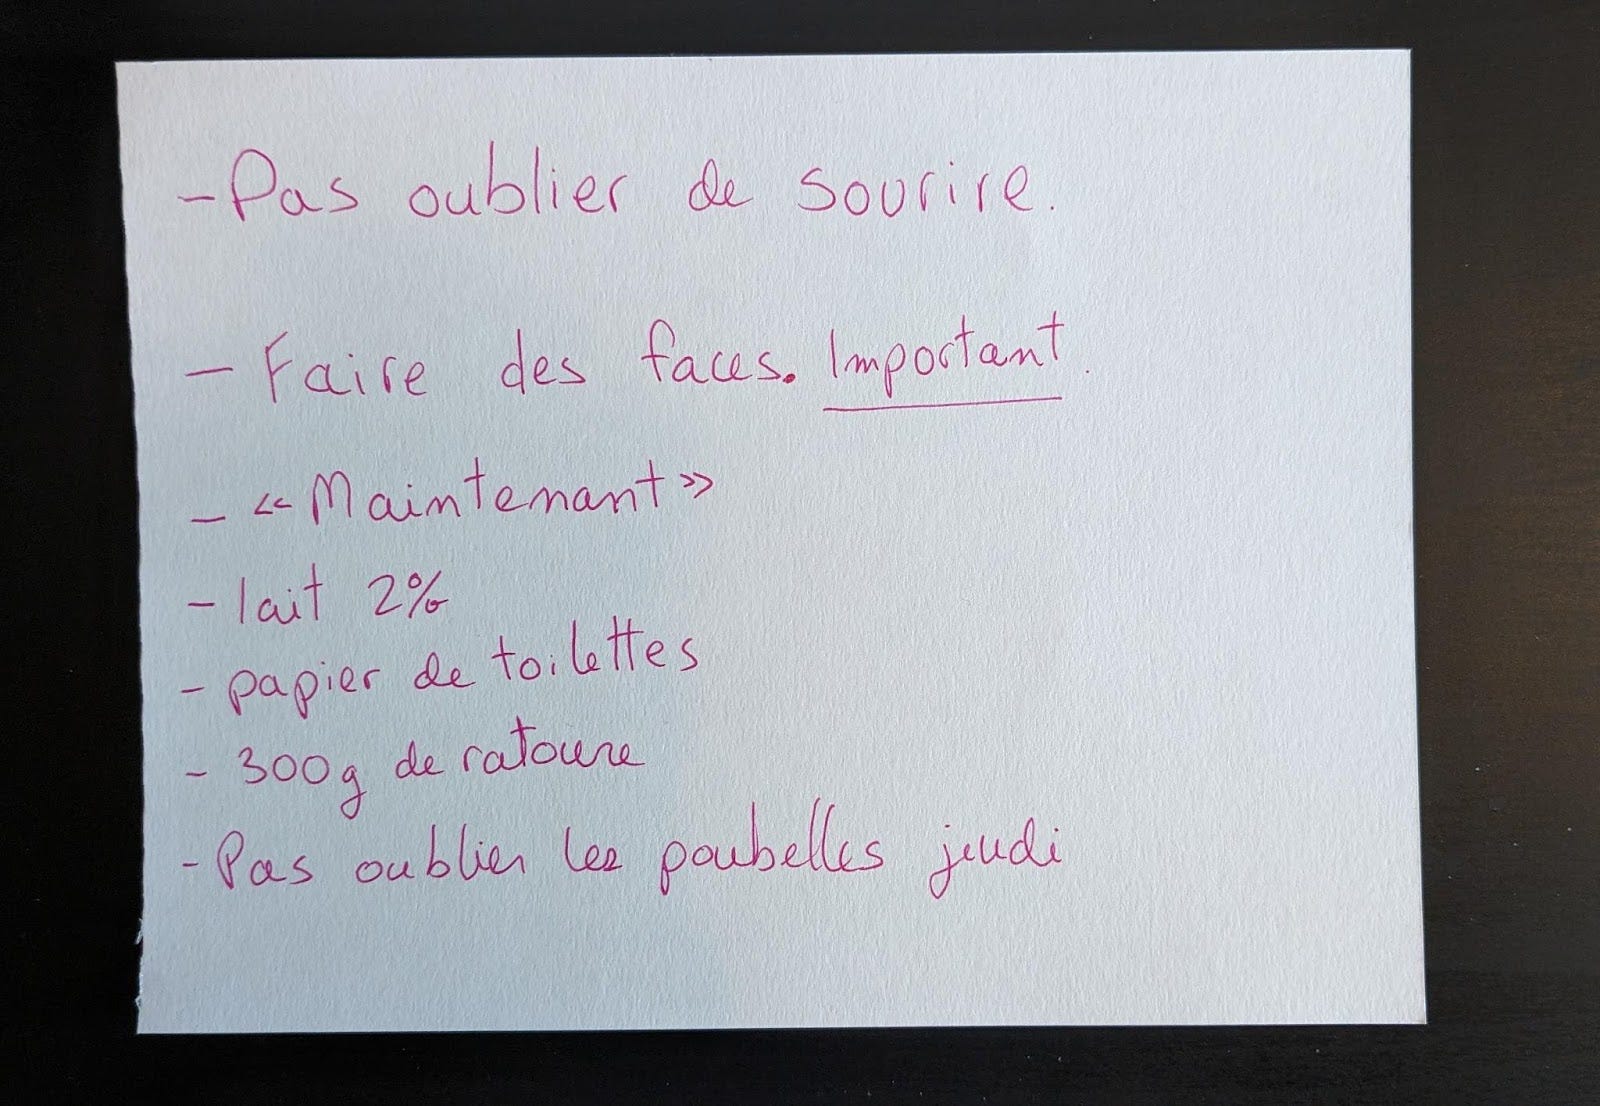 - Pas oublier de sourire.
- Faire des faces. Important.
- « Maintenant »
- lait 2%
- papier de toilettes
- 300g de ratoure
- Pas oublier les poubelles jeudi